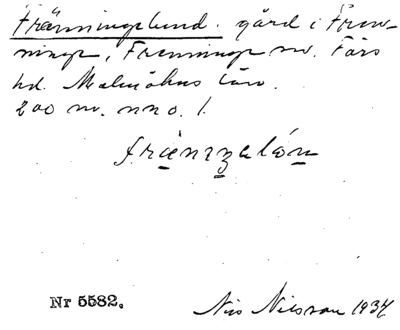 Fränningslund. gård i Fren-
ninge, Frenninge sn. Färs
hd. Malmöhus län.
200 m. nno. 1.
Nr 5582.
Nils Nilsson 1934